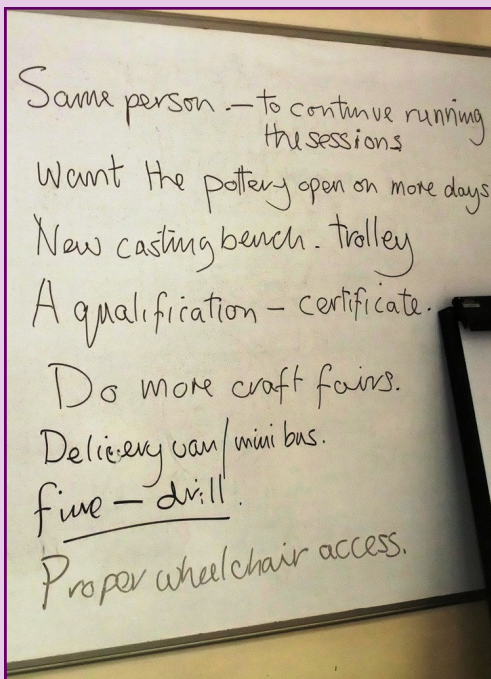 Same person – to continue running
the sessions
Want the pottery open on more days
New casting bench. trolley
A qualification – certificate.
Do more craft fairs.
Delivery van/mini bus.
fire – drill.
Proper wheelchair access.